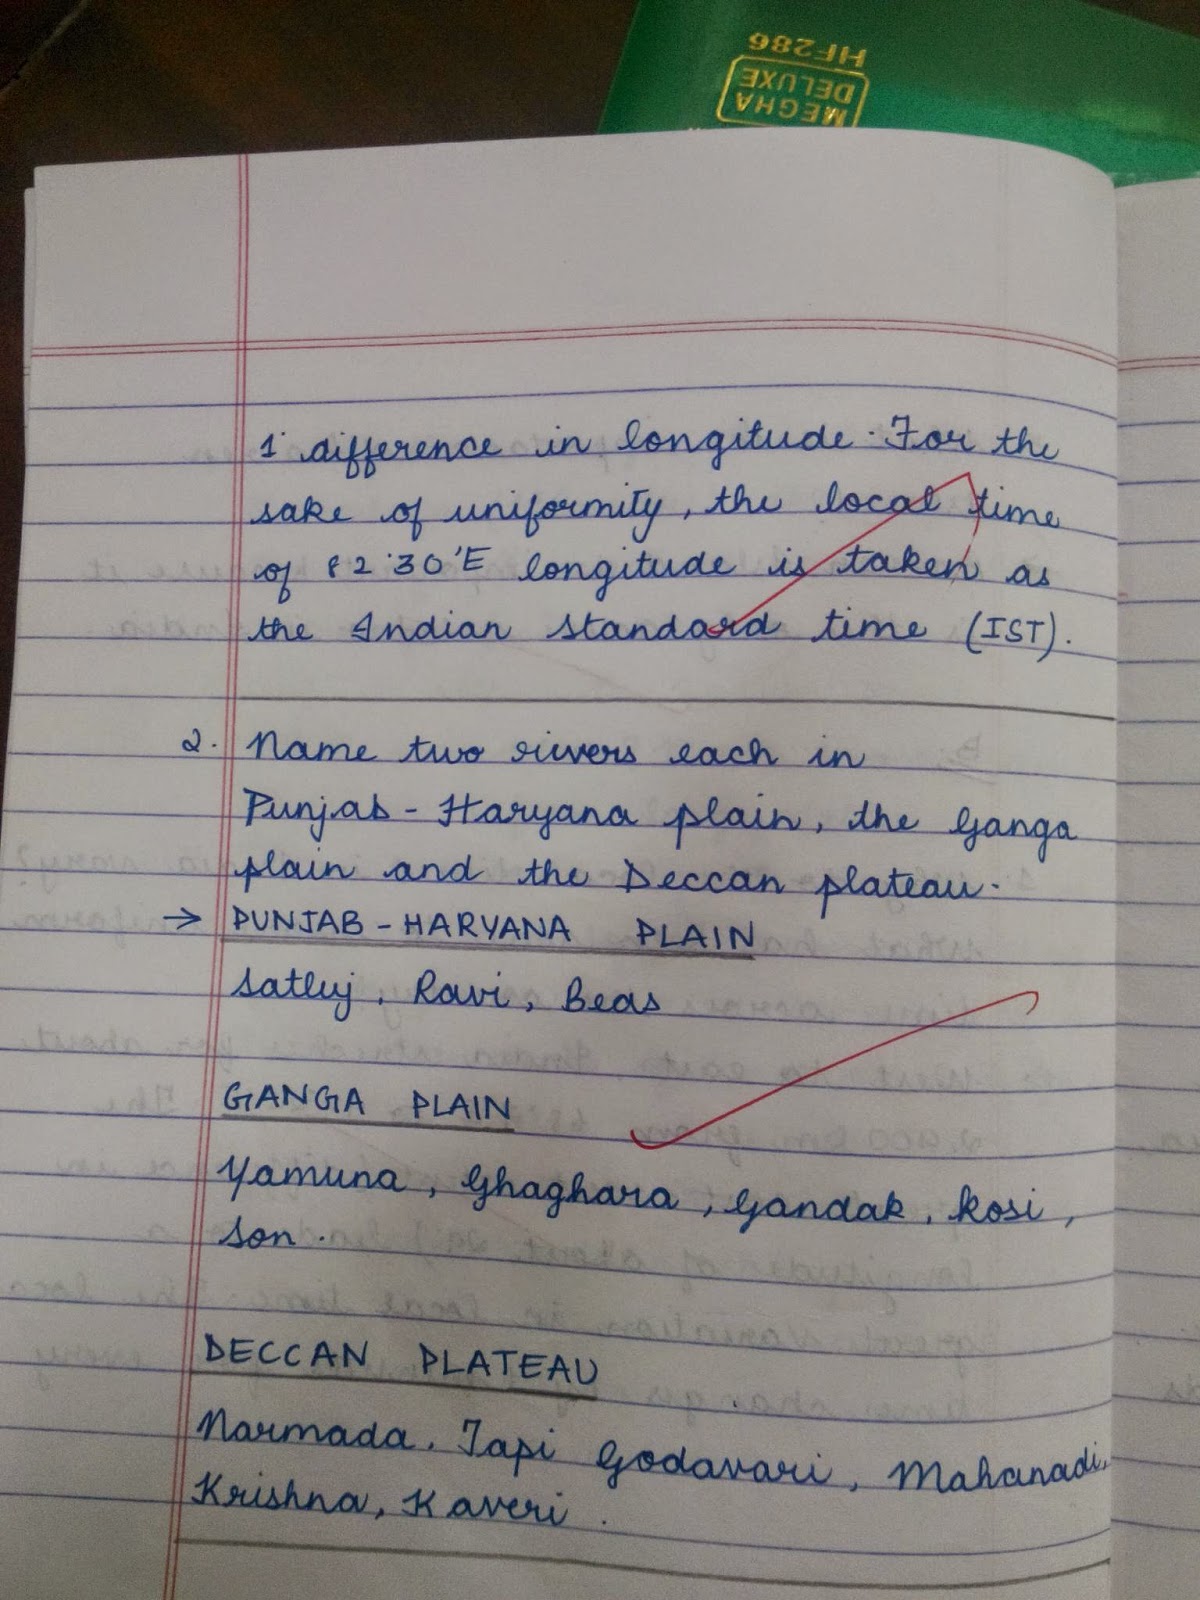 HF286
MEGHA
DELUXE
1° difference in longitude. For the
sake of uniformity, the local time
of 82°30'E longitude is taken as
the Indian Standard time (IST).
2. Name two rivers each in
Punjab-Haryana plain, the Ganga
plain and the Deccan plateau.
→ PUNJAB-HARYANA PLAIN
Satluj, Ravi, Beas
GANGA PLAIN
Yamuna, Ghaghara, Gandak, Kosi,
Son.
DECCAN PLATEAU
Narmada, Tapi Godavari, Mahanadi,
Krishna, Kaveri.